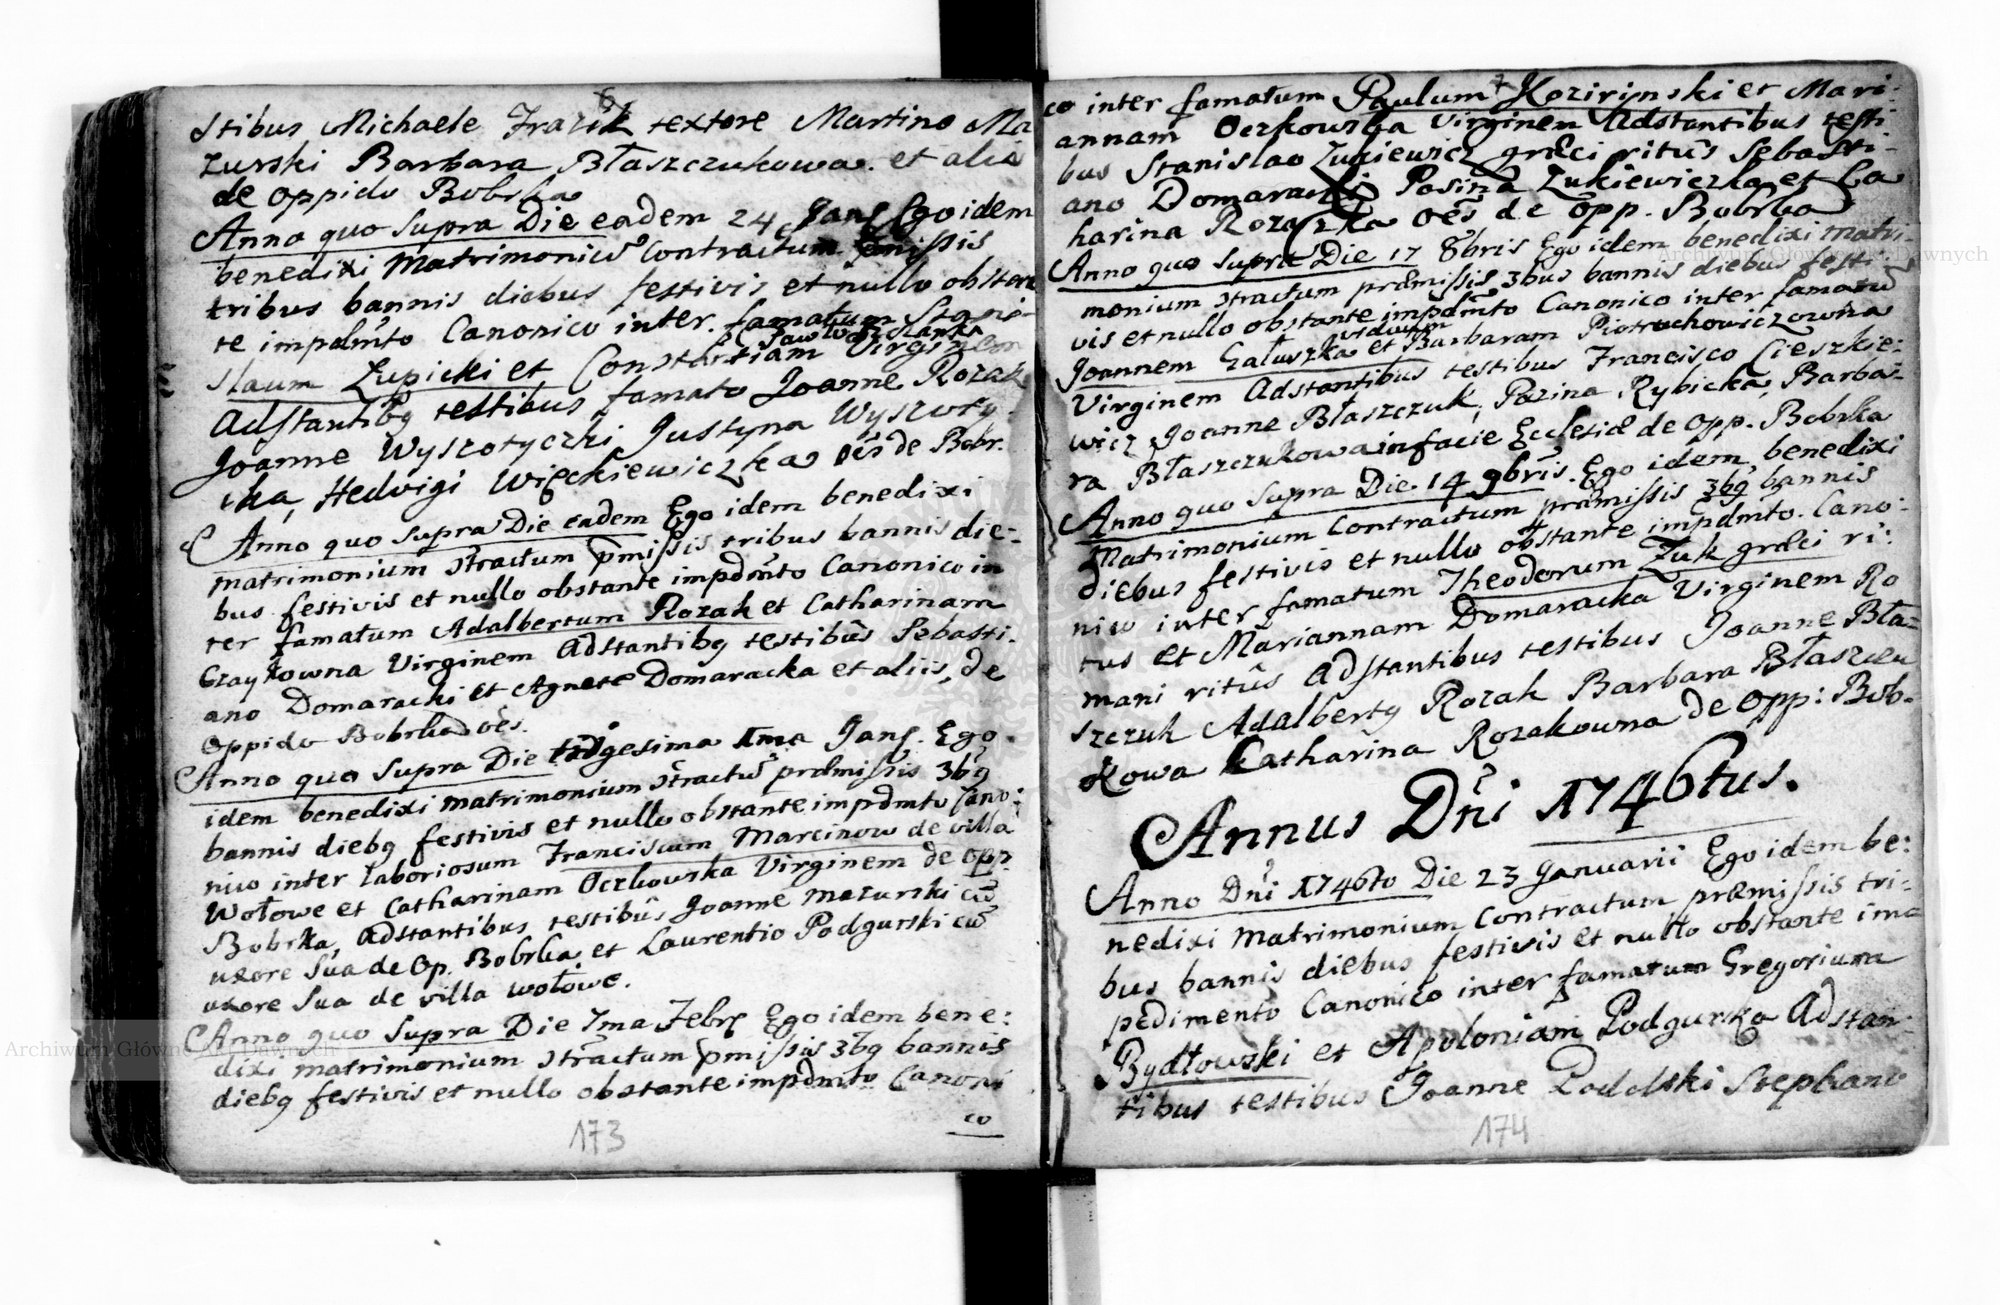 6
stibus Michaele Frazik textore Martino Ma
zurski Barbara Błaszczukowa et aliis
de oppido Bobrka
Anno quo supra Die eadem 24 Janŗ Ego idem
benedixi Matrimoniũ Contractum pmissis
tribus bannis diebus festivis et nullo obstan
te impdmto Canonico inter famatum Stani-
slaum Zupicki et Constantiam Virginem
Adstantibq testibus famato Joanne Rozak
Joanne Wyszotyczki Justyna Wyszoty
cka, Hedvigi Więckiewiczka oẽs de Bobr.
Anno quo supra Die eadem Ego idem benedixi
matrimonium 3tractum pmissis tribus bannis die-
bus festivis et nullo obstante impdmto Canonico in
ter famatum Adalbertum Rozak et Catharinam
Virginem Adstantibq testibus Sebasti-
ano Domaracki et Agnete Domaracka et aliis, de
Oppido Bobrka oẽs.
Anno quo supra Die trigesima 1ma Janŗ. Ego
idem benedixi matrimonium 3tractũ præmissis 3bq
bannis diebq festivis et nullo obstante impdmto Cano-
nico inter laboriosum Franciscum Marcinow de villa
Wołowe et Catharinam Oczkowska Virginem de opp.
Bobrka, Adstantibus testibus Joanne Mazurski cũ
uxore sua de Op. Bobrka et Laurentio Podgurski cũ
uxore sua de villa Wołowe.
Anno quo supra Die 7ma Febrŗ Ego idem bene:
dixi matrimonium 3tractum pmissis 3bq bannis
diebq festivis et nullo obstante impdmto Canoni
co
173
7
co inter famatum Paulum Kozirynski et Mari-
annam Oczkowska Virginem Adstantibus testi-
bus Stanislao Zukiewicz græci ritus Sebasti-
ano Domaracki Zukiewiczka et Ca
harina oẽs de opp. Bobrka
Anno quo supra Die 17 8bris Ego idem benedixi matri-
monium 3tractum præmissis 3bus bannis diebus festi
vis et nullo obstante impdmto Canonico inter famatũ
viduum
Joannem Gałuszka et Barbaram Piotrochowiczowna
Virginem Adstantibus testibus Francisco Cieszkie:
wicz Joanne Błaszczuk, Pozina Rybicka, Barba-
ra Błaszczukowa in facie Ecclesiæ de opp. Bobrka
Anno quo supra Die 14 9bris. Ego idem benedixi
Matrimonium Contractum præmissis 3bq bannis
diebus festivis et nullo obstante impdmto Cano-
nico inter famatum Theodorum Zuk græci ri-
tus et Mariannam Domaracka Virginem Ro
mani ritus Adstantibus testibus Joanne Bła-
szczuk Adalbertq Rozak Barbara Błaszczu
kowa Catharina Rozakowna de opp: Bob-
Annus Dñi 1746tus.
Anno Dñi 1746to Die 23 Januarii Ego idem be:
nedixi Matrimonium Contractum præmissis tri-
bus bannis diebus festivis et nullo obstante im
pedimento Canonico inter famatum Gregorium
Bydłowski et Apoloniam Podgurka Adstan-
tibus testibus Joanne Podolski Stephano
174
Archiwum Główne Akt Dawnych
Archiwum Główne Akt Dawnych